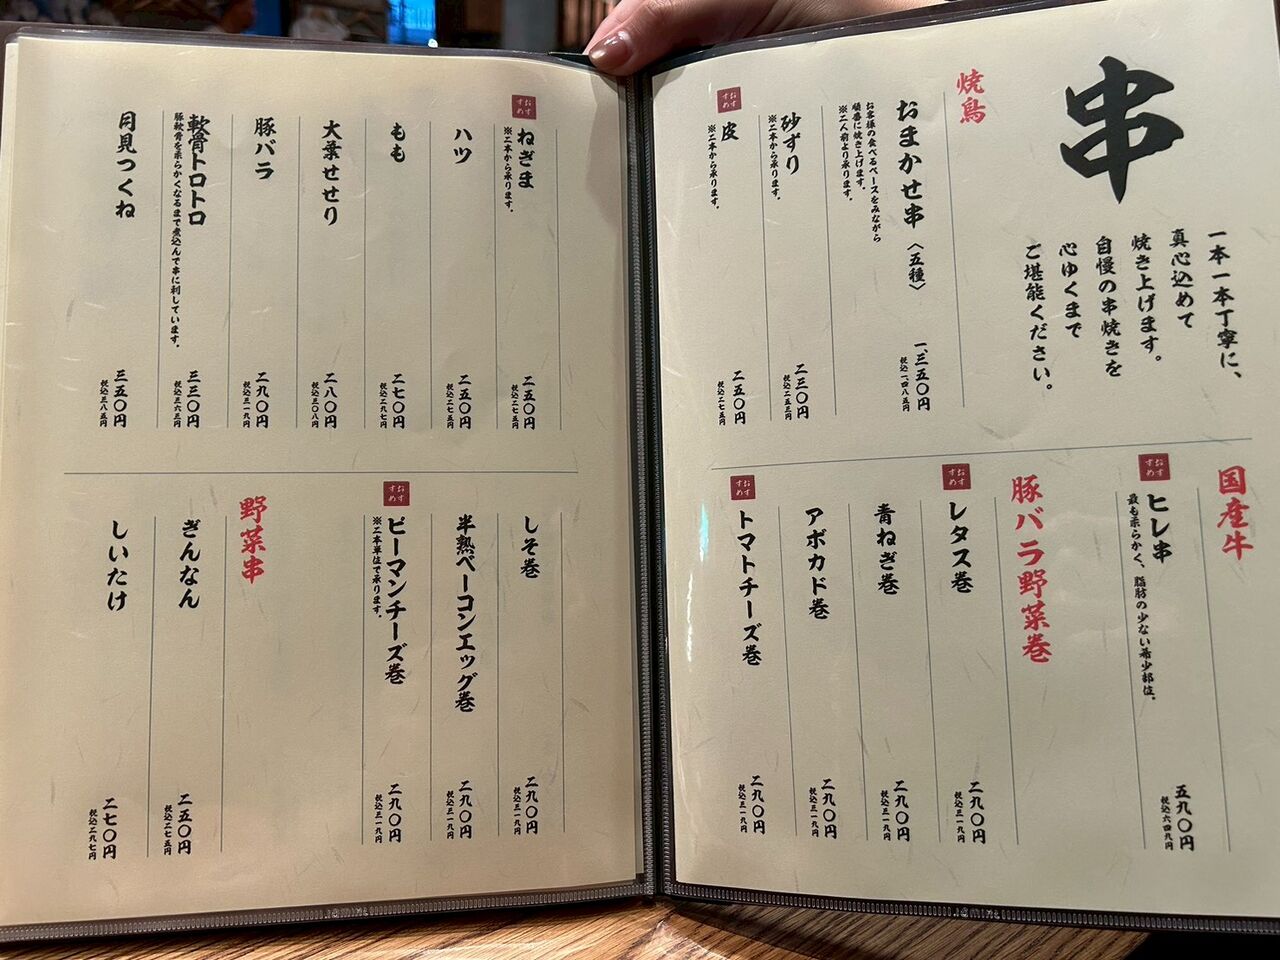 串
一本一本丁寧に、
真心込めて
焼き上げます。
自慢の串焼きを
心ゆくまで
ご堪能ください。
焼鳥
おまかせ串〈五種〉
お客様の食べるペースをみながら
順番に焼き上げます。
※二人前より承ります。
一、三五〇円
税込一四八五円
砂ずり
※二本から承ります。
二三〇円
税込二五三円
おすすめ
皮
※二本から承ります。
二五〇円
税込二七五円
国産牛
おすすめ
ヒレ串
最も柔らかく、脂肪の少ない希少部位。
五九〇円
税込六四九円
豚バラ野菜巻
おすすめ
レタス巻
二九〇円
税込三一九円
青ねぎ巻
二九〇円
税込三一九円
アボカド巻
二九〇円
税込三一九円
おすすめ
トマトチーズ巻
二九〇円
税込三一九円
おすすめ
ねぎま
※二本から承ります。
二五〇円
税込二七五円
ハツ
二五〇円
税込二七五円
もも
二七〇円
税込二九七円
大葉せせり
二八〇円
税込三〇八円
豚バラ
二九〇円
税込三一九円
軟骨トロトロ
豚軟骨を柔らかくなるまで煮込んで串に刺しています。
三三〇円
税込三六三円
月見つくね
三五〇円
税込三八五円
しそ巻
二九〇円
税込三一九円
半熟ベーコンエッグ巻
二九〇円
税込三一九円
おすすめ
ピーマンチーズ巻
※二本単位で承ります。
二九〇円
税込三一九円
野菜串
ぎんなん
二五〇円
税込二七五円
しいたけ
二七〇円
税込二九七円